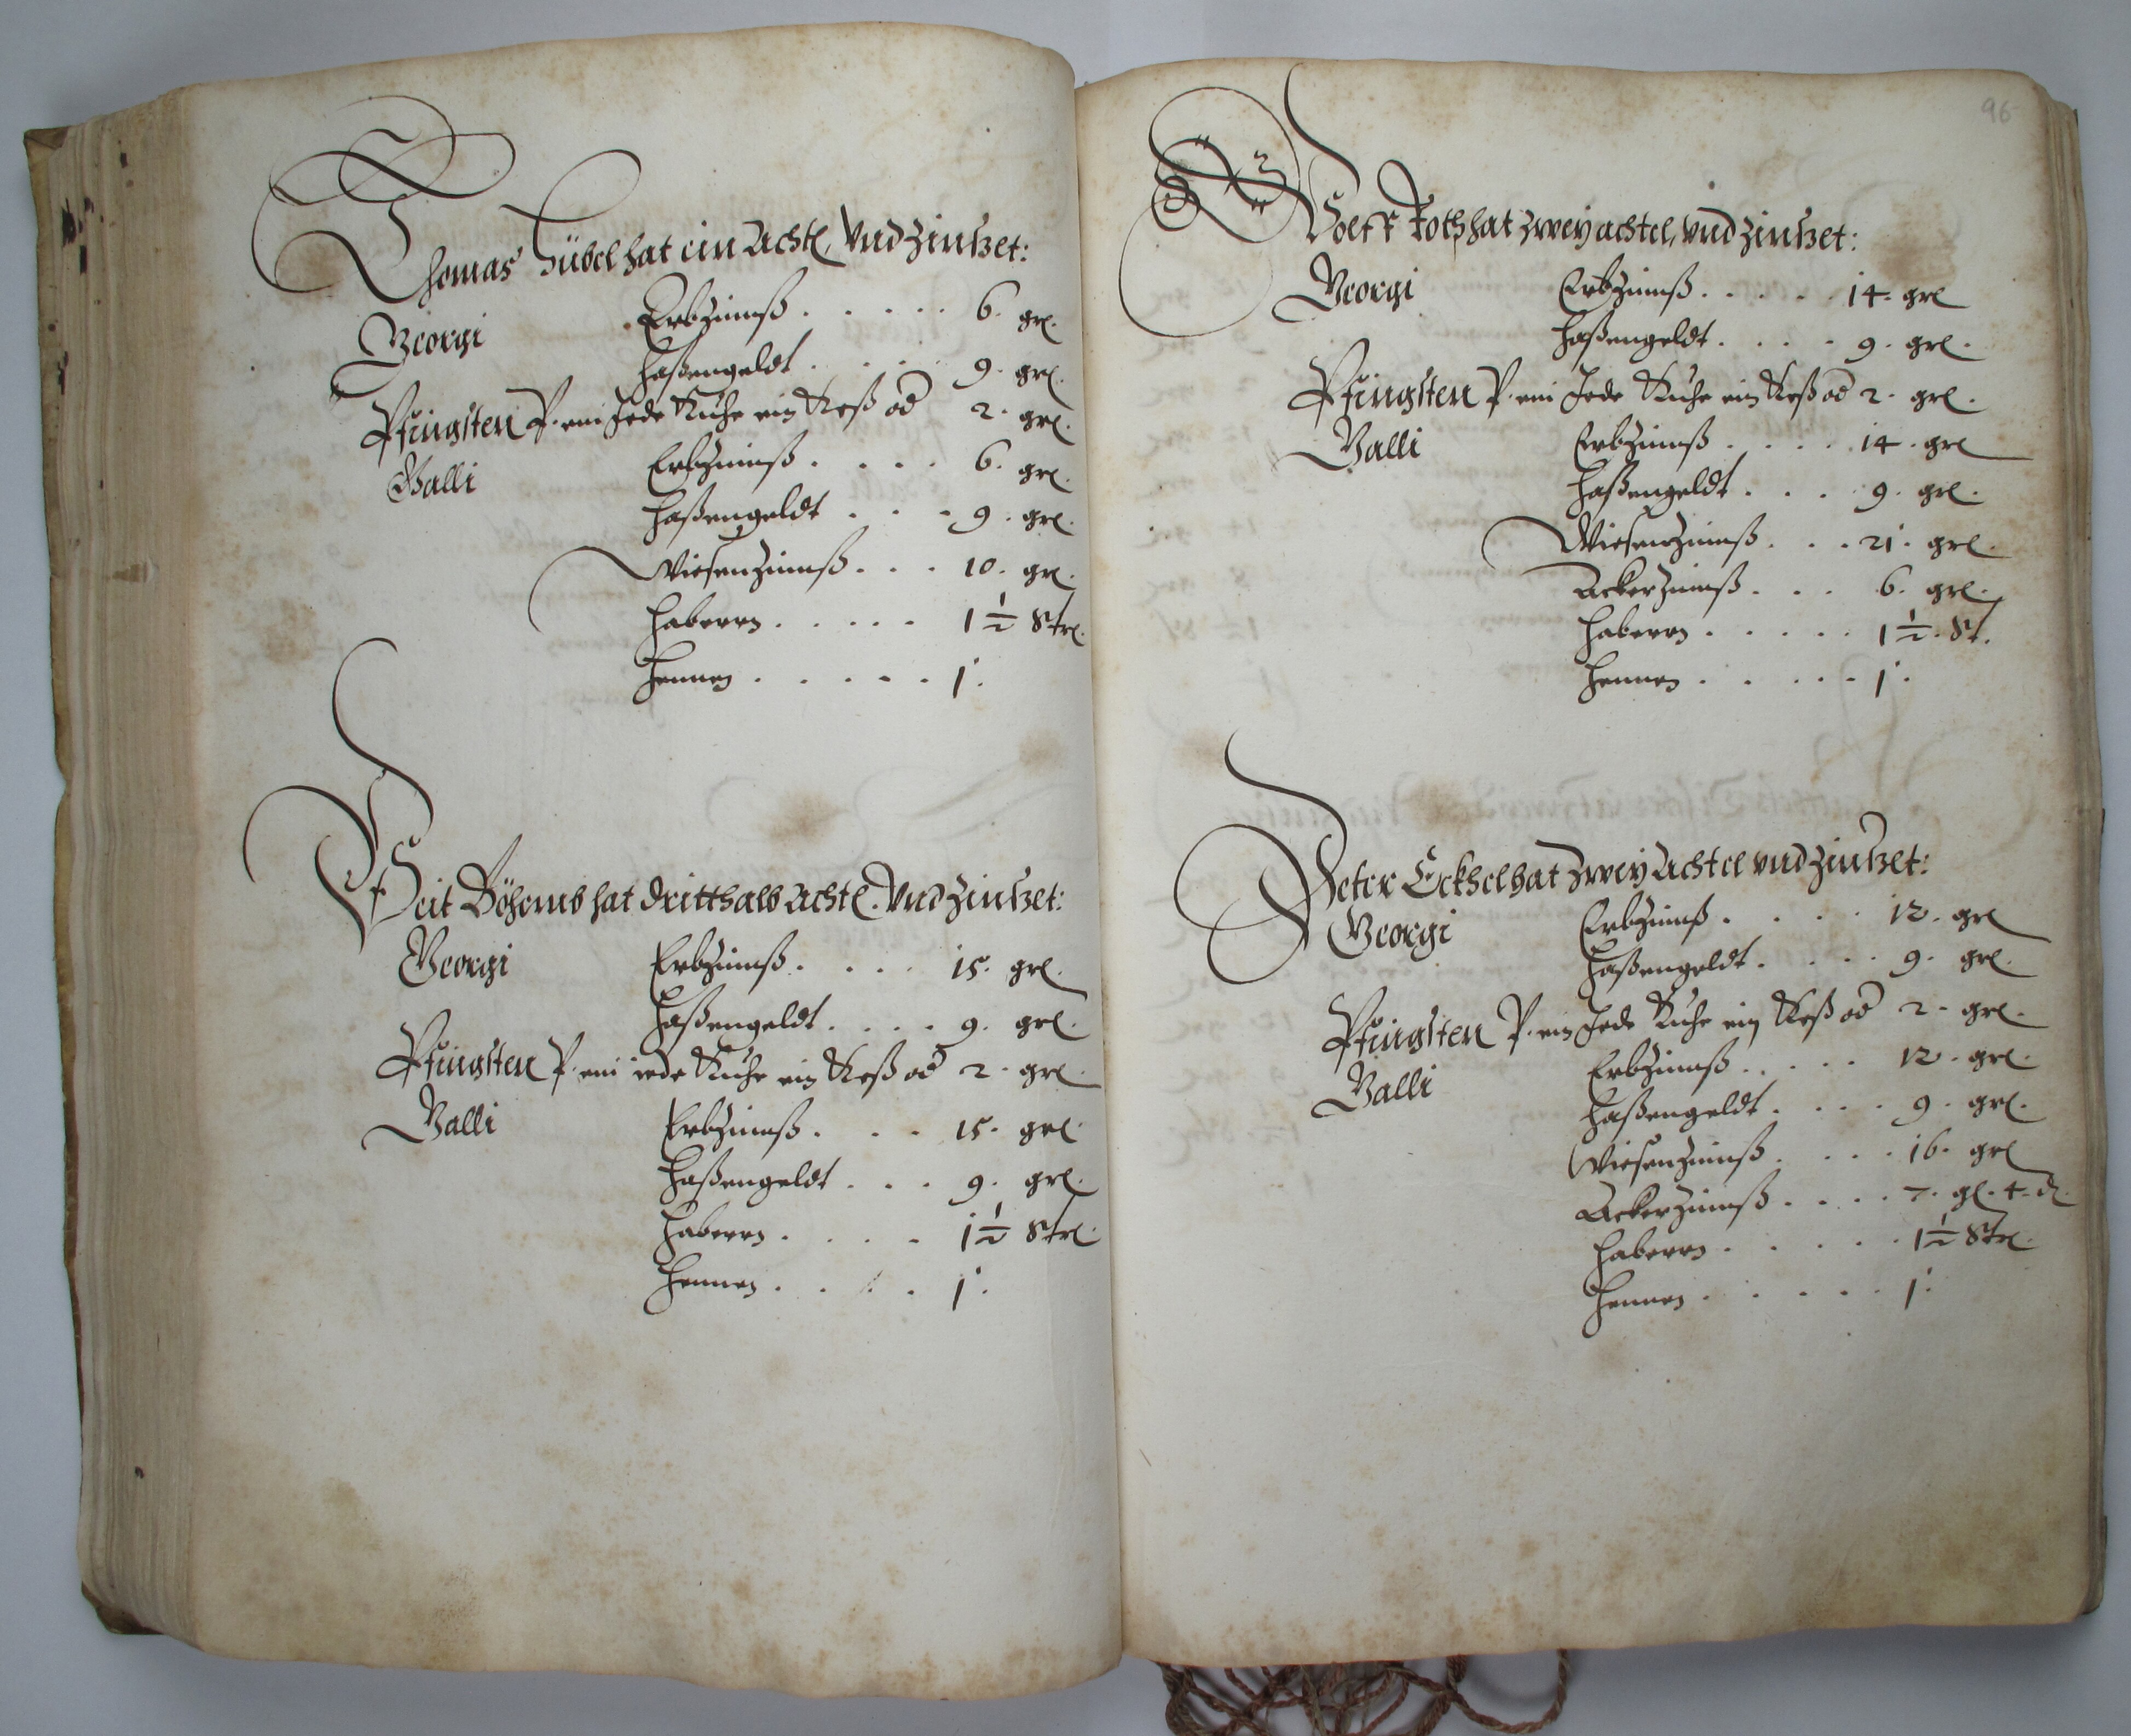 Thomas Hübel hat ein Achtl. Vnd Zinßet:
Georgi Erbzinnß . . . . . 6. grl.
Haßengeldt . . . . 9. grl.
Pfingsten P. ein Jede Kuhe ein Keß od 2. grl.
Galli Erbzinnß . . . . 6. grl.
Haßengeldt . . . 9. grl.
Wiesenzinnß . . . 10. grl.
Habern . . . . . 1 1/2 Strl.
Hennen . . . . . 1.
Veit Böhemb hat dritthalb Achtl. Vnd Zinßet:
Georgi Erbzinnß . . . . 15. grl.
Haßengeldt . . . . 9. grl.
Pfingsten P. ein iede Kuhe ein Keß od 2. grl.
Galli Erbzinnß . . . 15. grl.
Haßengeldt . . . 9. grl.
Habern . . . . 1 1/2 Strl.
Hennen . . . . 1.
96
Wolff hat zwey achtel, Vnd Zinßet:
Georgi Erbzinnß . . . . . 14. grl
Haßengeldt . . . . 9. grl.
Pfingsten P. ein Jede Kuhe ein Keß od 2. grl.
Galli Erbzinnß . . . . 14. grl
Haßengeldt . . . . 9. grl.
Wiesenzinnß . . . 21. grl.
Ackerzinnß . . . 6. grl.
Habern . . . . . 1 1/2. St.
Hennen . . . . . 1.
Peter Eckhel hat Zwey Achtel vnd Zinßet:
Georgi Erbzinnß . . . . 12. grl
Haßengeldt . . . . 9. grl.
Pfingsten P. ein Jede Kuhe ein Keß od 2. grl.
Galli Erbzinnß . . . . . 12. grl.
Haßengeldt . . . . 9. grl.
Wiesenzinnß . . . . 16. grl
Ackerzinnß . . . . 7. gl. 4. d.
Habern . . . . . 1 1/2 Strl.
Hennen . . . . . 1.